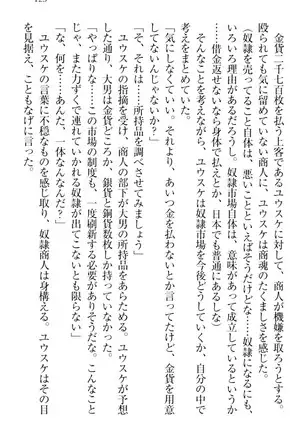 金貨二千七百枚を払う上客であるユウスケに対して、商人が機嫌を取ろうとする。
殴られても気に留めていない商人に、ユウスケは商魂のたくましさを感じた。
(奴隷を売ってること自体は、悪いことといえばそうだけどな……奴隷になるにも
いろいろ理由があるだろうし。奴隷市場自体は、意味があって成立しているという
……借金返せないなら身体で払えとか、日本でも普通にあるしな)
そんなことを考えながら、ユウスケは奴隷市場を今後どうするか、自分の中で
考えをまとめていた。
「気にしなくていい。それより、あいつ金を払わないとか言ってたけど、金貨を用意
してないんじゃないか？」
「そ、それは……所持品を調べさせてみましょう」
ユウスケの指摘を受け、商人の部下が大男の所持品をあらためる。ユウスケが予想
した通り、大男は金貨どころか、銀貨と銅貨数枚しか持っていなかった。
「やっぱりな……この市場の制度も、一度刷新する必要がありそうだな。こんなこと
じゃ、また力ずくで連れていかれる奴隷が出てこないとも限らない」
「な、何を……あんた、一体なんなんだ？」
ユウスケの言葉に不穏なものを感じ取り、奴隷商人は身構える。ユウスケはその目
を見据え、こともなげに言った。